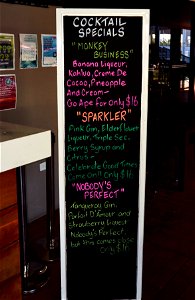 COCKTAIL
SPECIALS
"MONKEY
BUSINESS"
Banana Liqueur,
Kahlua, Creme De
Cacao, Pineapple
And Cream-
Go Ape For Only $16
"SPARKLER"
Pink Gin, Elderflower
Liqueur, Triple Sec,
Berry Syrup and
Citrus -
Celebrate Good Times
Come On!! Only $16
"NOBODY'S
PERFECT"
Tanqueray Gin,
Parfait D'Amour and
Strawberry Liqueur
Nobody's Perfect,
but this comes close
Only $16